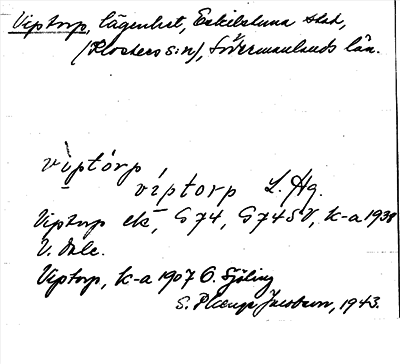 Viptorp, lägenhet, Eskilstuna stad,
(Klosters s:n), Södermanlands län.
vìptórp
víptorp L. Hg.
Viptorp ek, G74, G74SV, k-a 1938
V. Dale.
Viptorp, k-a 1907 O. Sjöling
S. Jacobson, 1943.